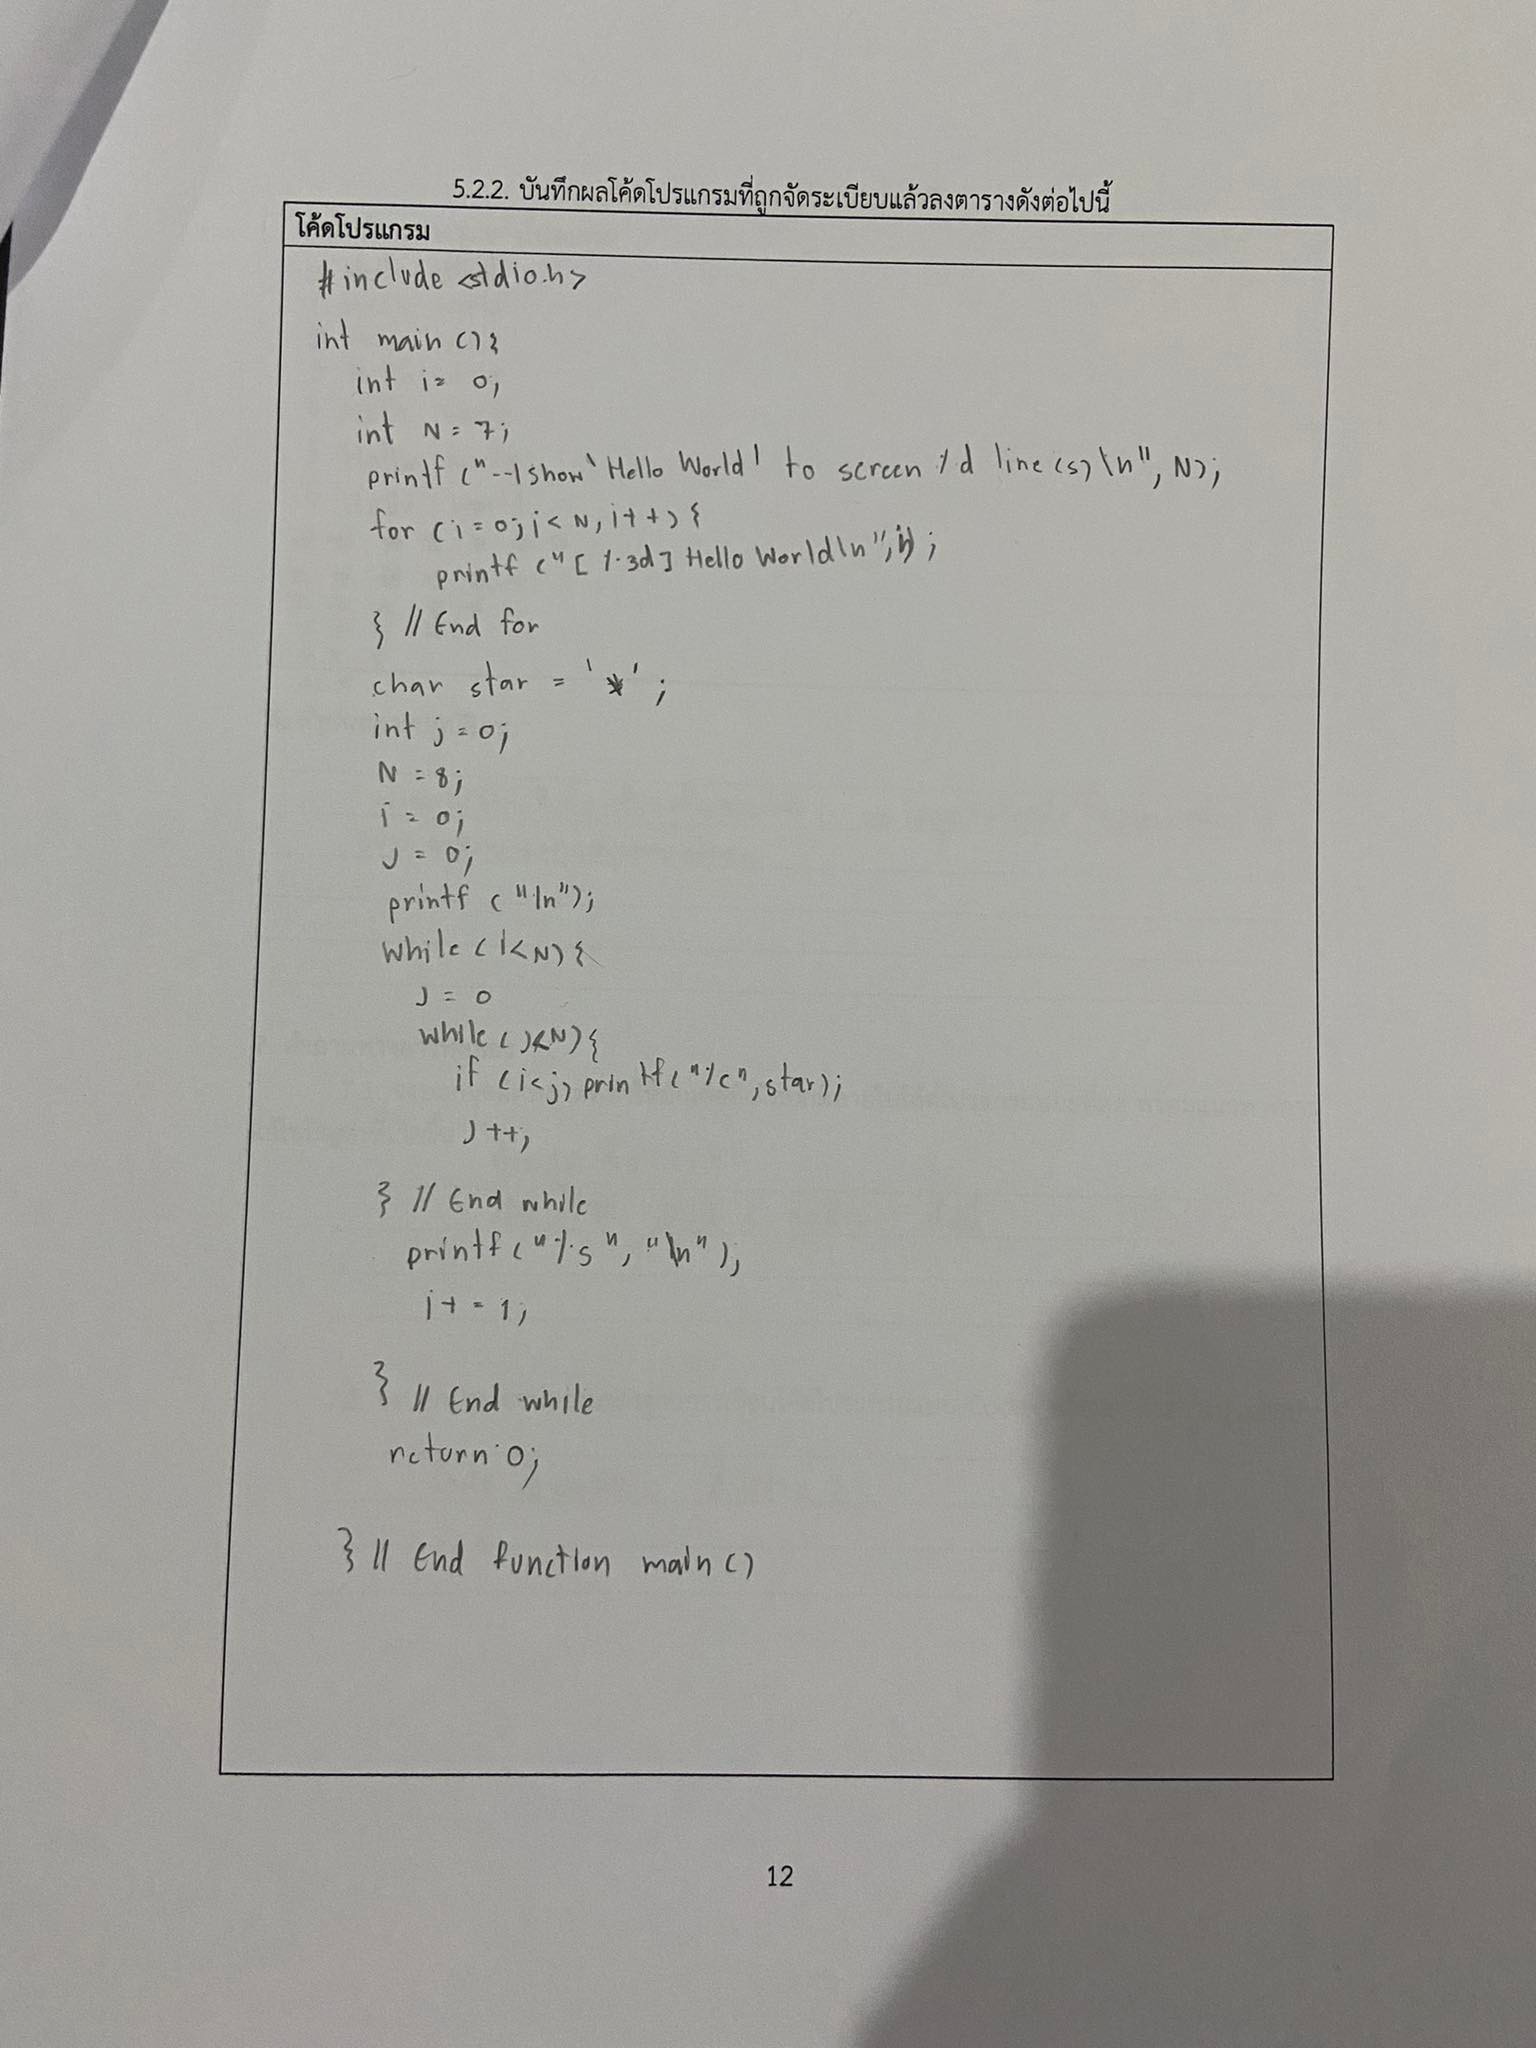 5.2.2. บันทึกผลโค้ดโปรแกรมที่ถูกจัดระเบียบแล้วลงตารางดังต่อไปนี้
โค้ดโปรแกรม
#include <stdio.h>
int main () {
int i = 0;
int N = 7;
printf ("--| show 'Hello World' to screen %d line (s) \n", N);
for (i = 0; i < N, i++) {
printf ("[ %3d] Hello World\n", i) ;
} // End for
char star = '*' ;
int j = 0;
N = 8;
i = 0;
J = 0;
printf ("\n");
while (i<N) {
J = 0
while (J<N) {
if (i<j) printf ("%c", star);
J ++;
} // End while
printf ("%s", "\n" );
i+ = 1;
} // End while
return 0;
} // End function main ()
12